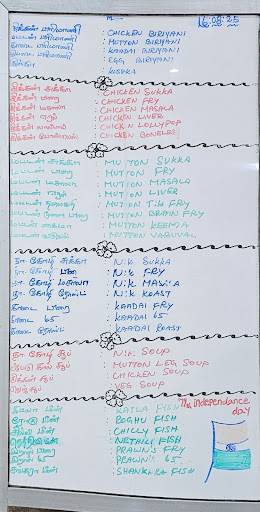 16.08.25
சிக்கன் பிரியாணி : CHICKEN BIRIYANI
மட்டன் பிரியாணி : MUTTON BIRIYANI
காடை பிரியாணி : KAADAI BIRIYANI
: EGG BIRIYANI
: KUSKA
சிக்கன் சுக்கா : CHICKEN SUKKA
சிக்கன் : CHICKEN FRY
சிக்கன் மசாலா : CHICKEN MASALA
சிக்கன் : CHICKEN LIVER
சிக்கன் : CHICKEN LOLLYPOP
சிக்கன் : CHICKEN BONELESS
மட்டன் சுக்கா : MUTTON SUKKA
மட்டன் : MUTTON FRY
மட்டன் மசாலா : MUTTON MASALA
மட்டன் : MUTTON LIVER
மட்டன் : MUTTON FRY
மட்டன் : MUTTON BRAIN FRY
மட்டன் கைமா : MUTTON KEEMA
மட்டன் : MUTTON VARUVAL
நா. கோழி சுக்கா : N.K SUKKA
நா. கோழி : N.K FRY
நா. கோழி மசாலா : N.K MASALA
நா. கோழி ரோஸ்ட் : N.K ROAST
காடை : KAADAI FRY
காடை 65 : KAADAI 65
காடை ரோஸ்ட் : KAADAI ROAST
நா. கோழி சூப் : N.K. SOUP
சூப் : MUTTON LEG SOUP
சிக்கன் சூப் : CHICKEN SOUP
சூப் : VEG SOUP
மீன் : KATLA FISH
மீன் : ROGHU FISH
மீன் : CHILLY FISH
: NETHILI FISH
: PRAWN'S FRY
65 : PRAWN'S 65
மீன் : SHANKARA FISH
The Independance
day